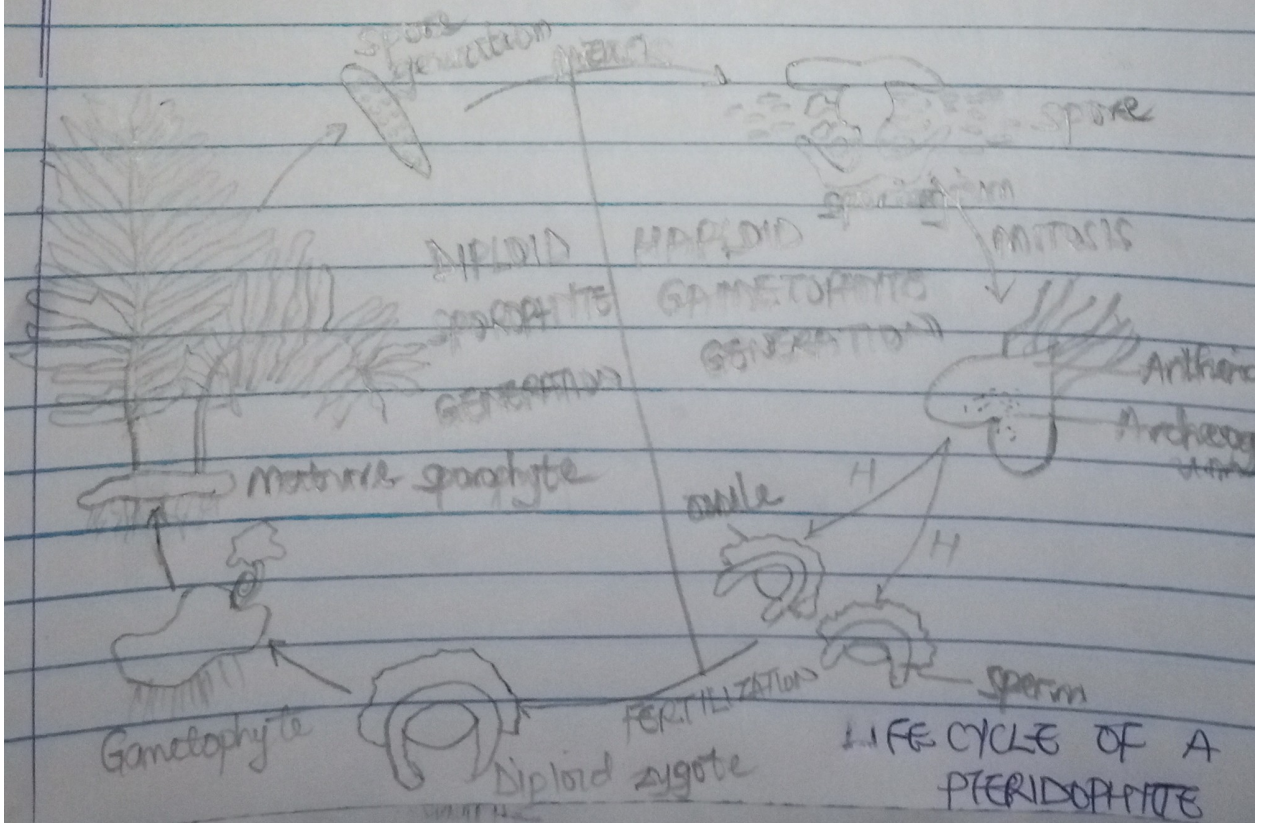 Spore
generation
Spore
MITOSIS
DIPLOID
SPOROPHYTE
GENERATION
HAPLOID
GAMETOPHYTE
GENERATION
Antheri
Archaeog
Mature sporophyte
H
H
ovule
Sperm
FERTILIZATION
Gametophyte
Diploid zygote
LIFE CYCLE OF A
PTERIDOPHYTE